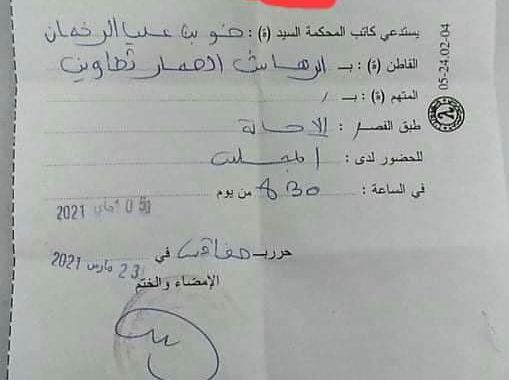 يستدعي كاتب المحكمة السيد (ة) : ضو بن عبد الرحمان
القاطن (ة) : بـ
المتهم (ة) : بـ /
طبق الفصل : الإحالة
للحضور لدى : المجلس
في الساعة : 8.30 من يوم 05 ماي 2021
حرر بـ صفاقس في 23 مارس 2021
الإمضاء والختم
05-24.02-04